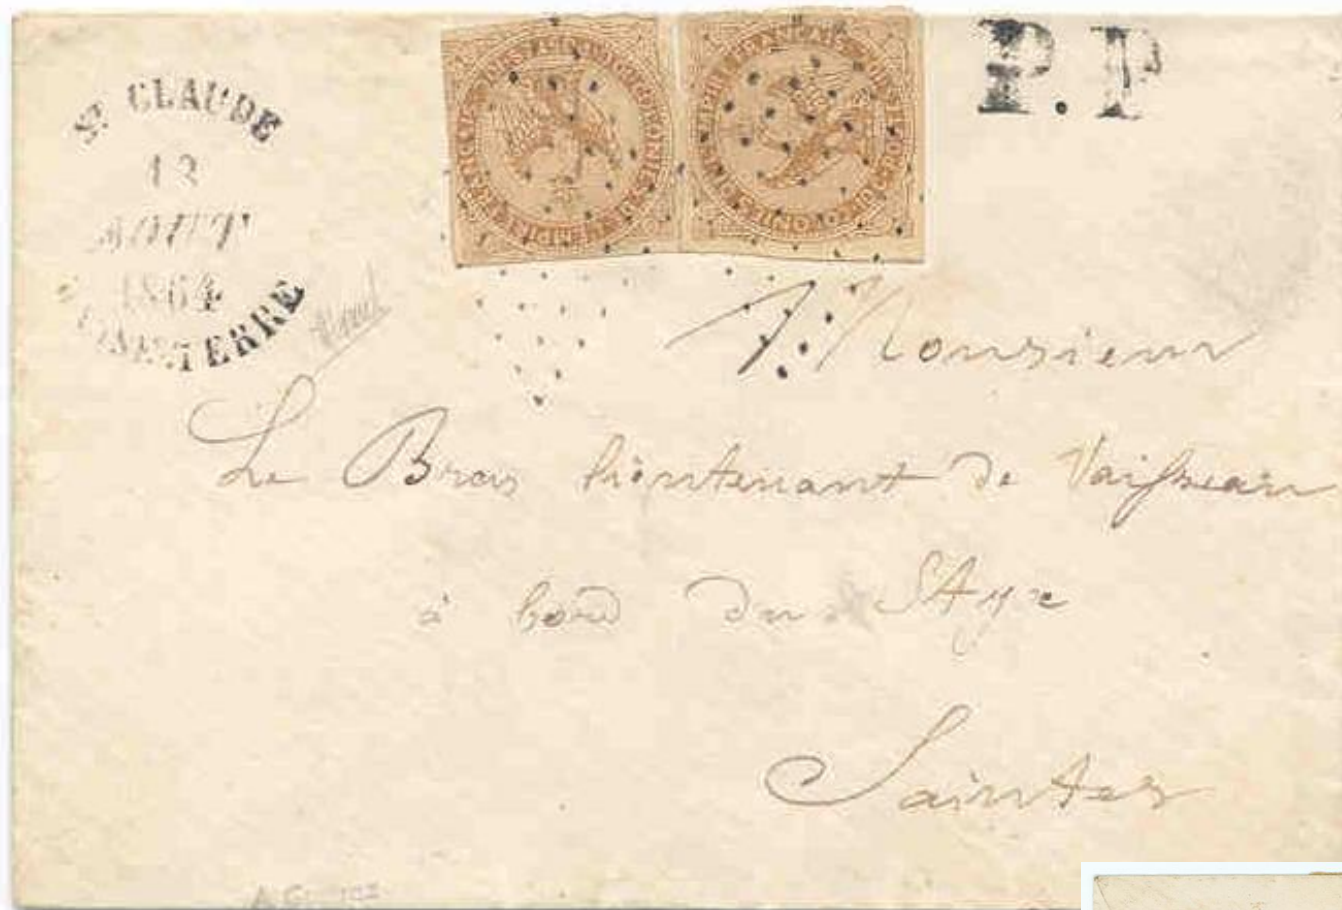 St CLAUDE
13
AOUT
1864
BASSE-TERRE
P.P
Monsieur
Le Bras lieutenant de Vaisseau
à bord du
Saintes